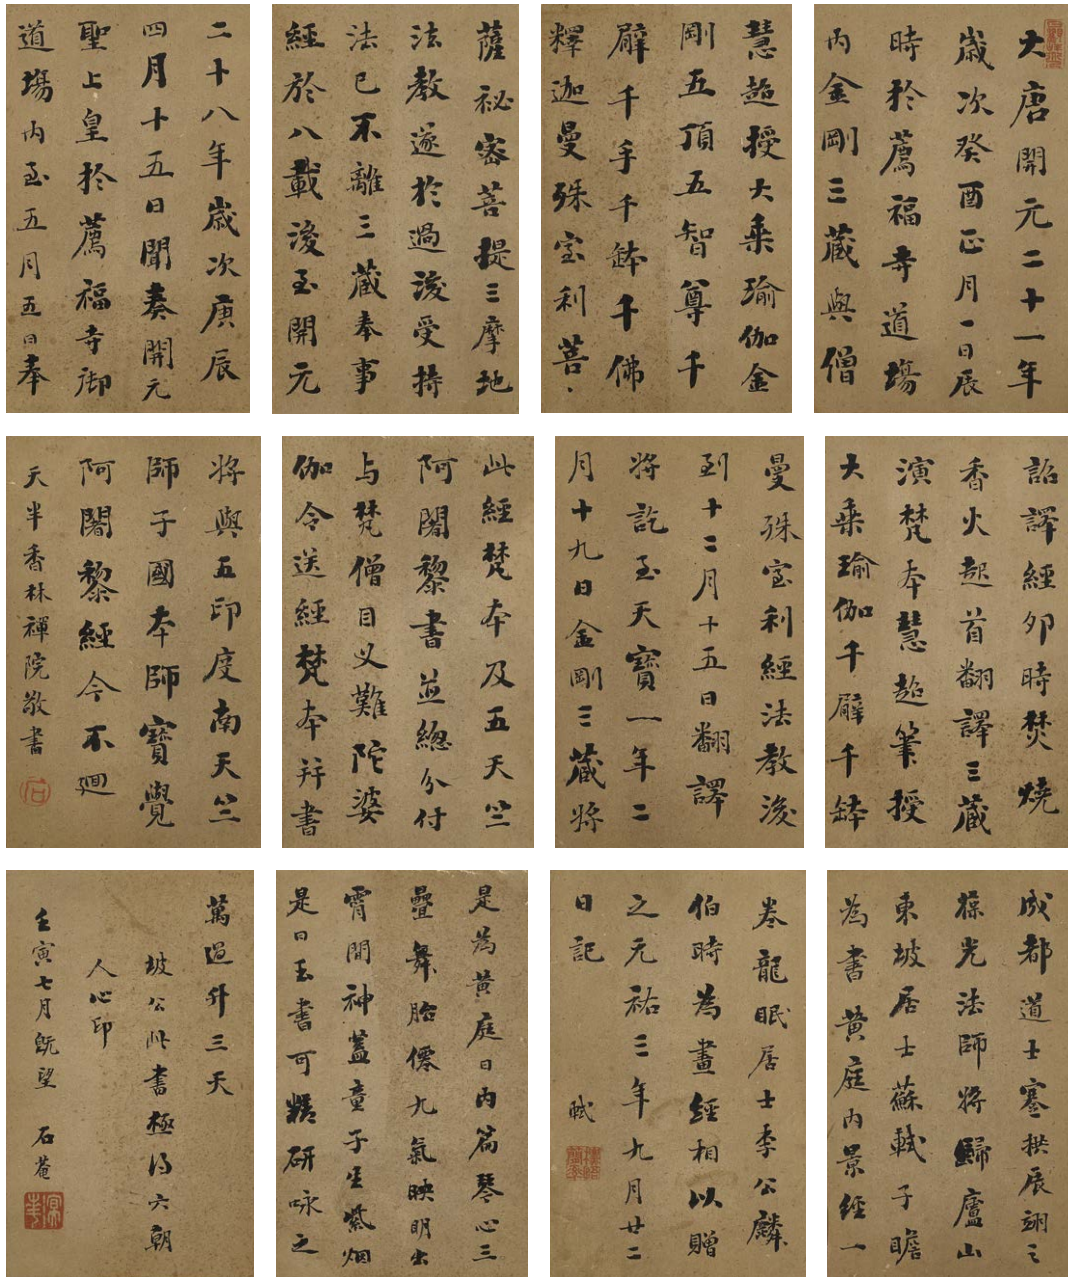 大唐開元二十一年
歲次癸酉正月一日辰
時於薦福寺道場
內金剛三藏與僧
慧超授大乘瑜伽金
剛五頂五智尊千
臂千手千鉢千佛
釋迦曼殊室利菩
薩祕密菩提三摩地
法教遂於過後受持
法已不離三藏奉事
經於八載後至開元
二十八年歲次庚辰
四月十五日聞奏開元
聖上皇於薦福寺御
道場內至五月五日奉
詔譯經卯時焚燒
香火起首翻譯三藏
演梵本慧超筆授
大乘瑜伽千臂千鉢
曼殊室利經法教後
到十二月十五日翻譯
將訖至天寶一年二
月十九日金剛三藏將
此經梵本及五天竺
阿闍黎書並總分付
与梵僧目叉難陀婆
伽令送經梵本并書
將與五印度南天竺
師子國本師寶覺
阿闍黎經今不廻
天半香林禪院敬書
成都道士蹇拱辰翊之
葆光法師將歸廬山
東坡居士蘇軾子瞻
為書黃庭內景經一
卷龍眠居士李公麟
伯時為畫經相以贈
之元祐三年九月廿二
日記 軾
是為黃庭曰內篇琴心三
疊舞胎僊九氣映明出
霄間神蓋童子生紫烟
是曰玉書可精研咏之
萬過升三天
坡公此書極得六朝
人心印
壬寅七月既望 石菴